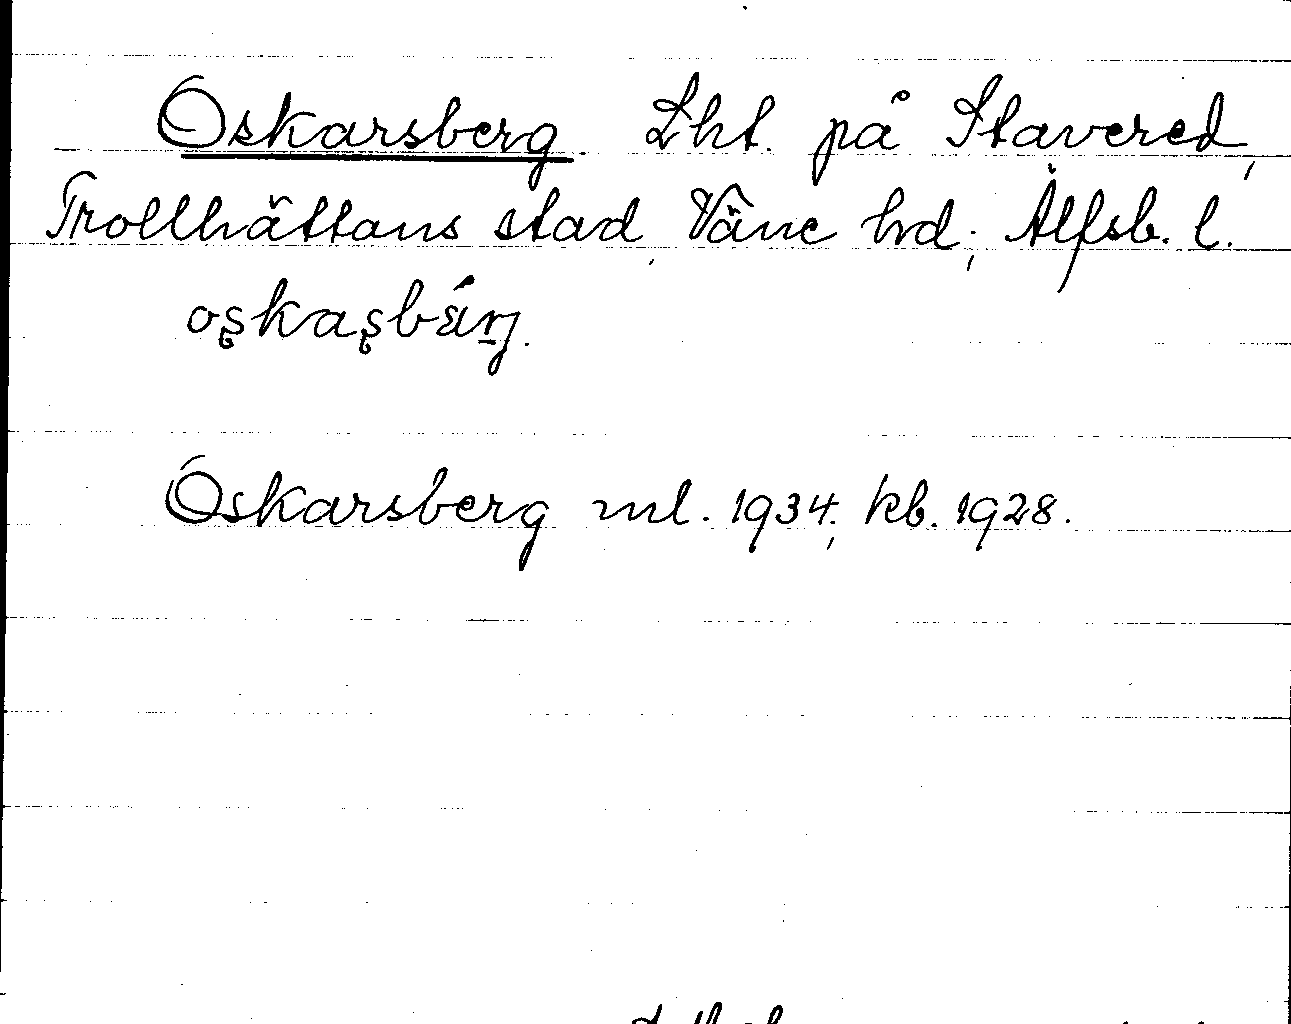 Oskarsberg. Lht. på Stavered,
Trollhättans stad, Väne hd; Älfsb. l.
Oskarsberg ml. 1934; kb. 1928.